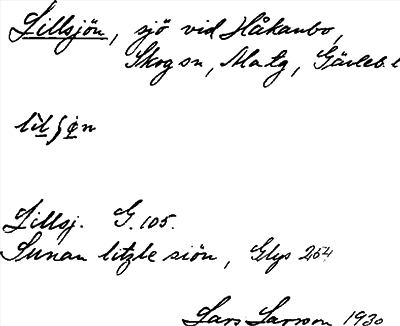 Lillsjön, sjö vid Håkanbo,
Skog sn, Matg, Gävleb. l
lìlʃø̀n
Lillsj. G. 105.
Sunan litzle siön, Glys 254
Lars Larsson 1930